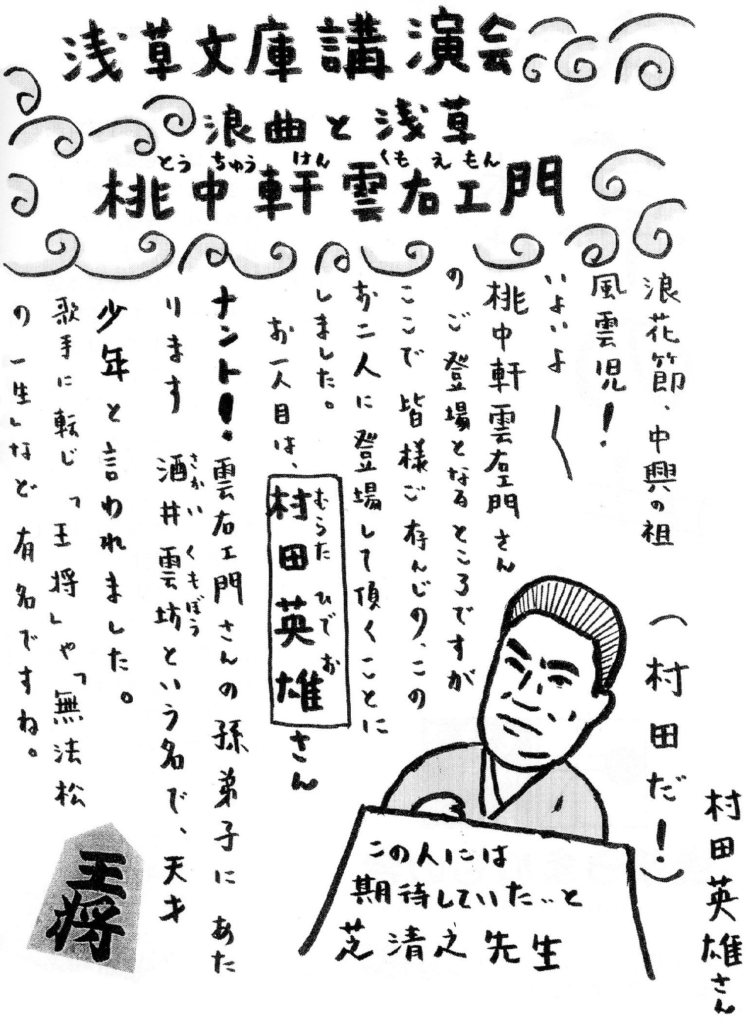 浅草文庫講演会
浪曲と浅草
とうちゅうけん くもえもん
桃中軒雲右エ門
浪花節、中興の祖
風雲児!
いよいよ〜
桃中軒雲右エ門さん
のご登場となるところですが
ここで皆様ご存んじの、この
お二人に登場して頂くことに
しました。
お一人目は、村田英雄さん
むらた ひでお
ナント!雲右エ門さんの孫弟子にあた
ります 酒井雲坊という名で、天才
さかい くもぼう
少年と言われました。
歌手に転じ「王将」や「無法松
の一生」など有名ですね。
(村田だ!)
村田英雄さん
この人には
期待していた…と
芝清之先生
王将